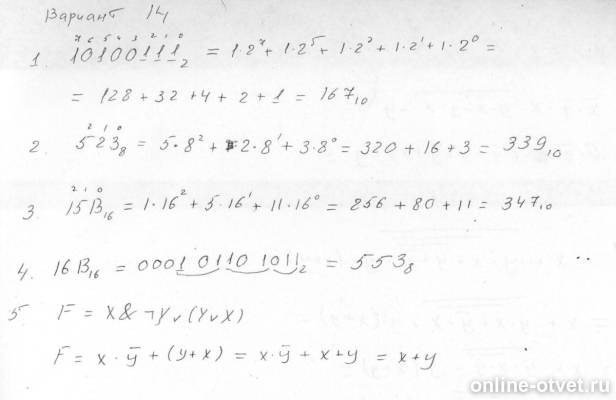 Вариант 14
7 6 5 4 3 2 1 0
1. 10100111₂ = 1·2⁷ + 1·2⁵ + 1·2² + 1·2¹ + 1·2⁰ =
= 128 + 32 + 4 + 2 + 1 = 167₁₀
2 1 0
2. 523₈ = 5·8² + 2·8¹ + 3·8⁰ = 320 + 16 + 3 = 339₁₀
2 1 0
3. 15B₁₆ = 1·16² + 5·16¹ + 11·16⁰ = 256 + 80 + 11 = 347₁₀
4. 16B₁₆ = 0001 0110 1011₂ = 553₈
5. F = X & ¬Y v (Y v X)
F = x · ȳ + (y + x) = x · ȳ + x + y = x + y
online-otvet.ru